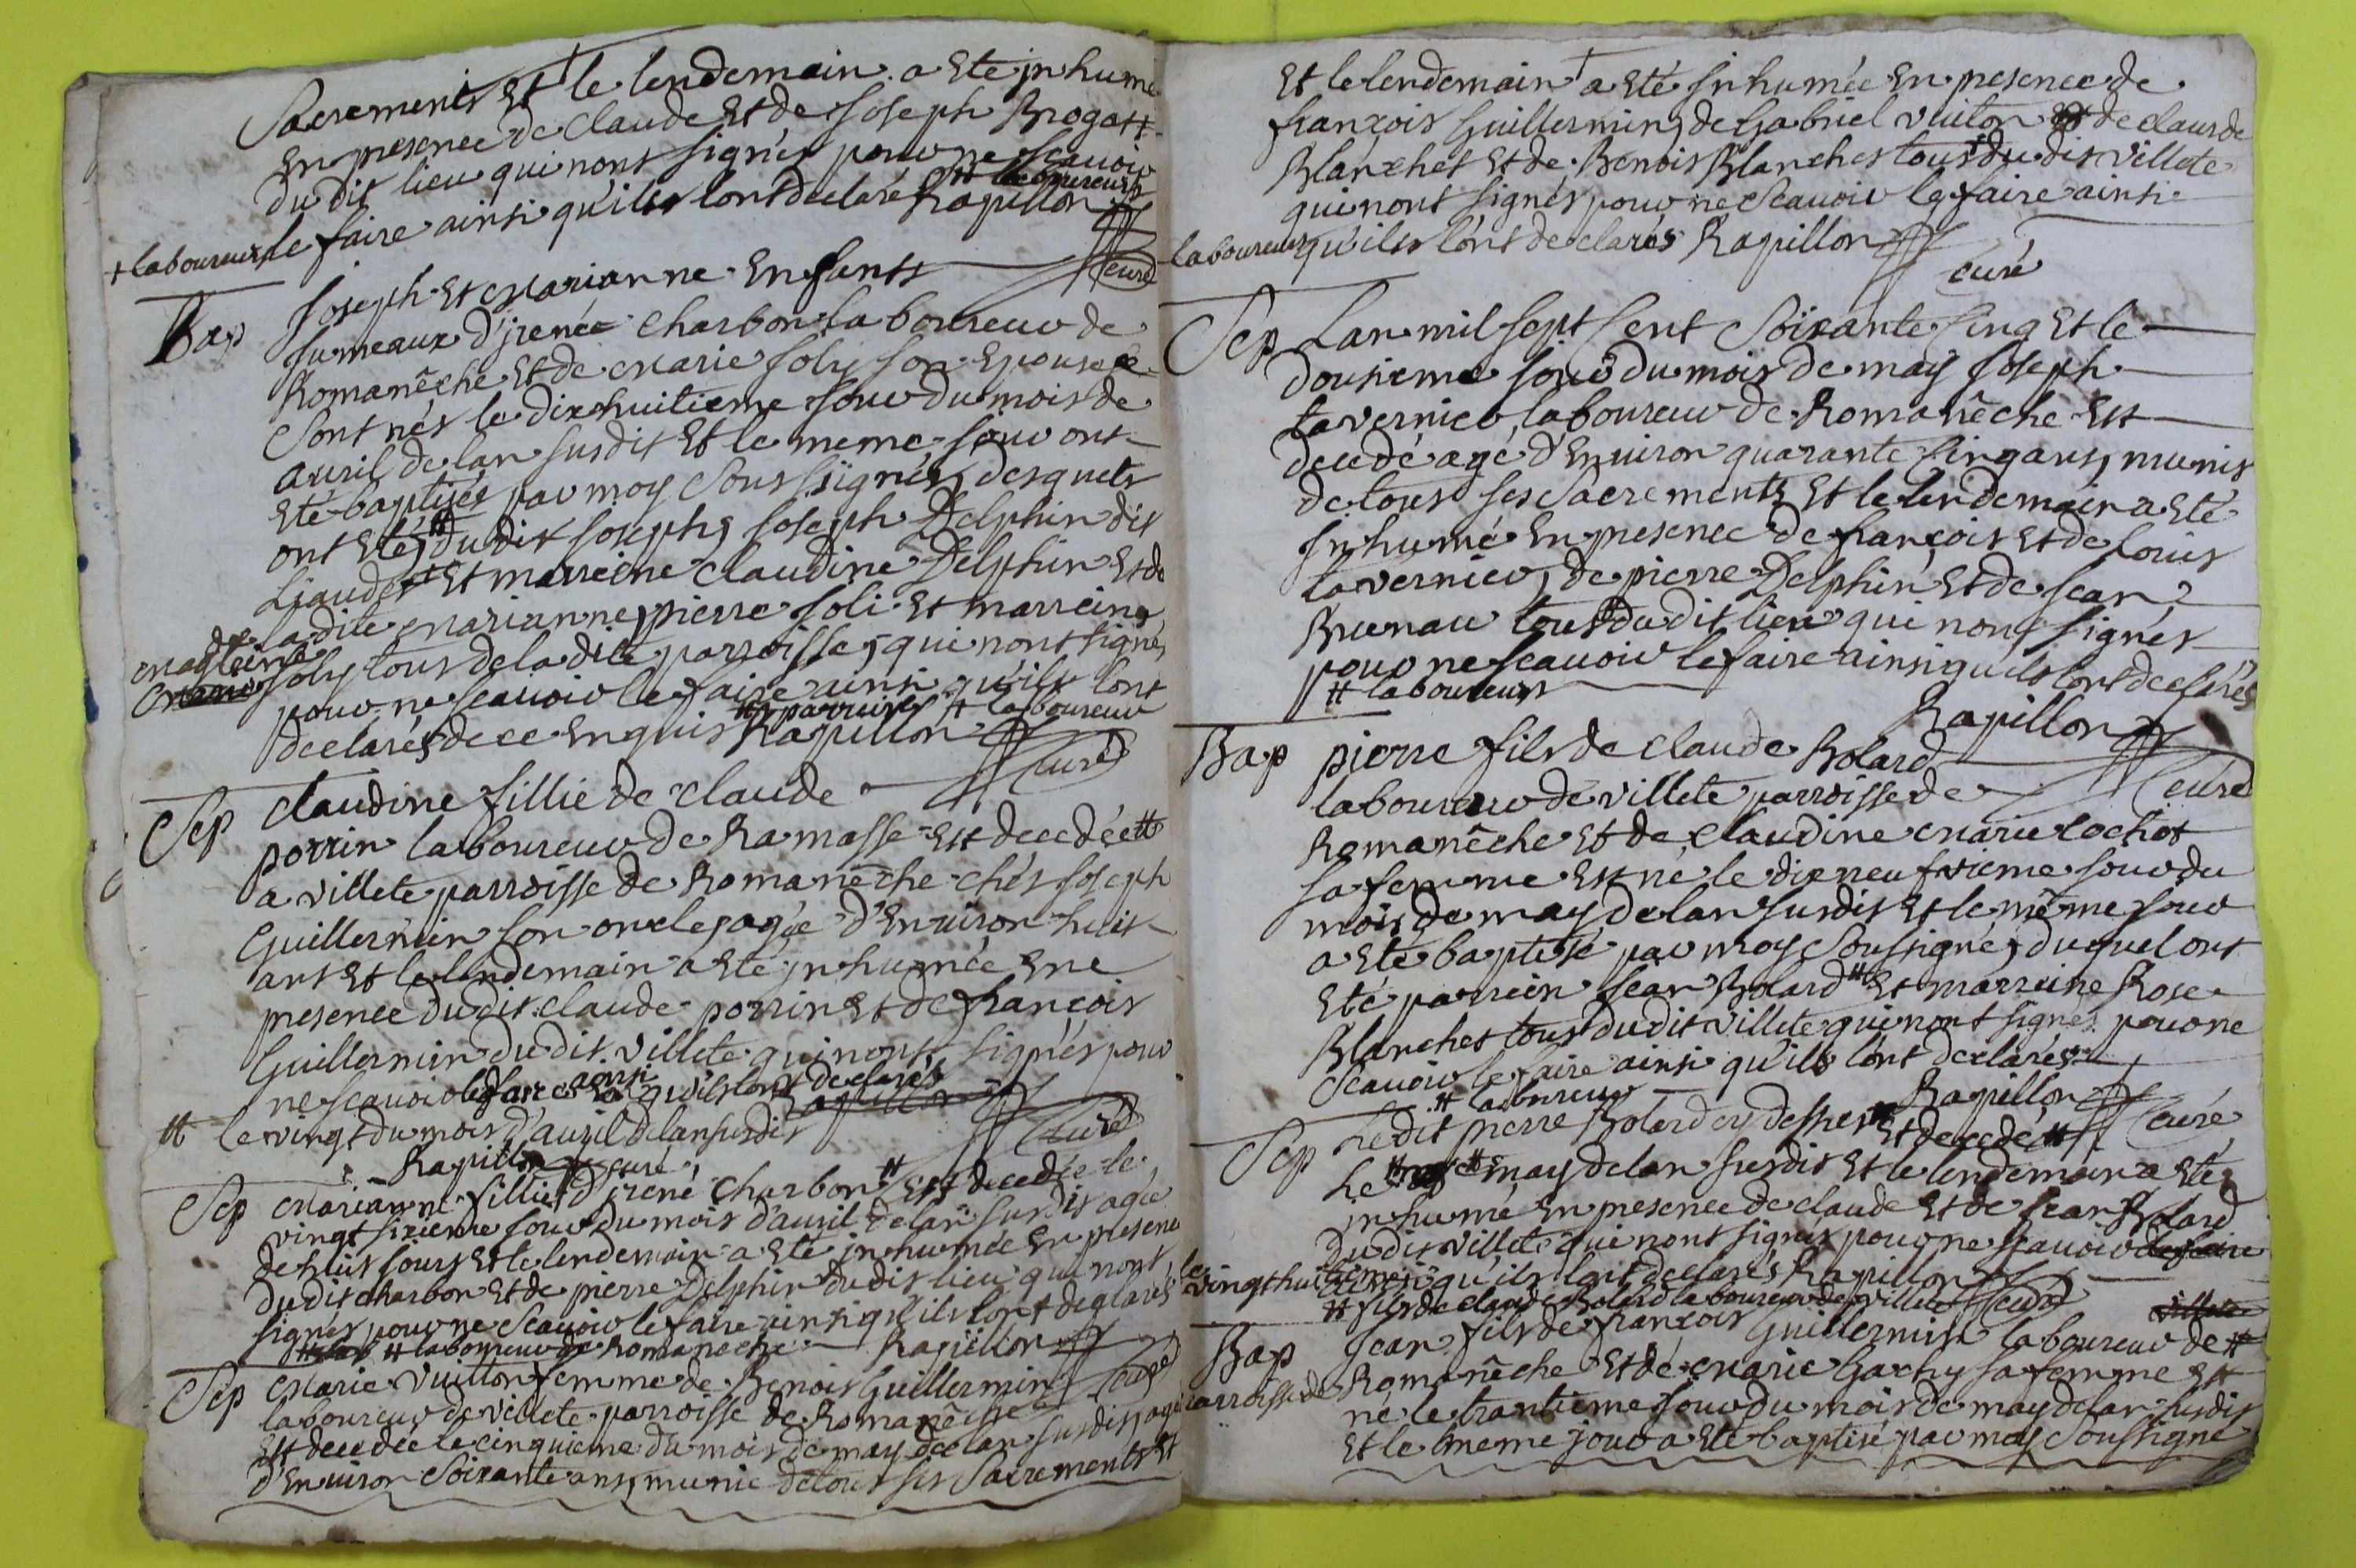 Sacrements Et le lendemain a Eté inhumé
En presence de Claude Et de Joseph Brogat ++
du dit lieu qui nont signés pour ne scauoir
++ laboureurs
+ laboureurs le faire ainsi qu'ils lont declaré Rapillon
curé
Bap Joseph Et Marianne Enfants
Jumeaux d'jrenée Charbon laboureur de
Romanêche Et de Marie Joly son Epouse
Sont nés le dixhuitieme Jour du mois de
avril de lan susdit Et le meme Jour ont
Eté baptisés par moy Soussignés, desquels
ont Eté ++ du dit Joseph, Joseph Delphin dit
Liaudet ++ Et marreine Claudine Delphin Et de
de la dite Marianne, pierre Joli Et marreine
Magdeleine
Joly tous de la dite parroisse, qui nont signé,
pour ne scauoir le faire ainsi qu'ils lont
++ parreins ++ laboureur
declarés de ce Enquis Rapillon
curé
Sep Claudine fillie de Claude
porrin laboureur de Ramasse Est decedée ++
a villete parroisse de Romanêche chés Joseph
Guillermin son oncle, agée d'Enuiron huit
ans Et le lendemain a Eté inhumée En
presence du dit Claude porrin Et de François
Guillermin du dit villete qui nont signés pour
ne scauoir le faire ainsi qu'ils lont declarés
Rapillon curé
++ le vingt du mois d'auril de lan susdit
Rapillon curé
Sep Marianne fillie d'jrené Charbon ++ Est decedée le
vingt sixieme Jour du mois d'auril de lan susdit agée
de huit Jours Et le lendemain a Eté inhumée En presence
du dit Charbon Et de pierre Delphin du dit lieu qui nont
signés pour ne Scauoir le faire ainsi qu'ils lont declarés
++ laboureur de Romanêche Rapillon
curé
Sep Marie Vuitton femme de Benois Guillermin
laboureur de villete parroisse de Romanêche
Est decedée le cinquieme du mois de may de lan susdit, agée
d'Enuiron Soixante ans, munie de tous ses Sacrements Et
Et le lendemain a Eté Inhumée En presence de
françois Guillermin, de Gabriel Vuiton de Claude
Blanchet Et de Benois Blanchet tous du dit Villete
qui nont signés pour ne Scauoir le faire ainsi
laboureurs qu'ils lont declarés Rapillon
curé
Sep Lan mil sept Cent Soixante Cinq Et le
dousieme Jour du mois de may Joseph
tavernier, laboureur de Romanêche Est
decedé agé d'Enuiron quarante Cinq ans, munis
de tous ses Sacrements Et le lendemain a Eté
Inhumé En presence de françois Et de Louis
tavernier, de pierre Delphin Et de Jean
Brunau tous du dit lieu qui nont signés
pour ne scauoir le faire ainsi qu'ils lont declarés
++ laboureurs
Rapillon
curé
Bap pierre fils de Claude Bolard
laboureur de villete parroisse de
Romanêche Et de Claudine Marie Cochot
Sa femme Est né le dix neufvieme Jour du
mois de may de lan susdit Et le même Jour
a Eté baptisé par moy Soussigné, duquel ont
Eté parrein Jean Bolard ++ Et marreine Rose
Blanchet tous du dit Villete qui nont signés pour ne
Scauoir le faire ainsi qu'ils lont declarés
++ laboureur
Rapillon
curé
Sep Le dit pierre Bolard cy dessus Est decedé ++
Le may de lan susdit Et le lendemain a Eté
inhumé En presence de Claude Et de Jean Bolard
du dit Villete qui nont signés pour ne scauoir le faire
le vingt huitieme ainsi qu'ils lont declarés Rapillon
++ fils de claude Bolard laboureur de villete curé
Bap Jean fils de françois Guillermin laboureur de ++
villete
parroisse de Romanêche Et de Marie Gachy sa femme Est
né le trantieme Jour du mois de may de lan susdit
Et le meme jour a Eté baptisé par moy Soussigné